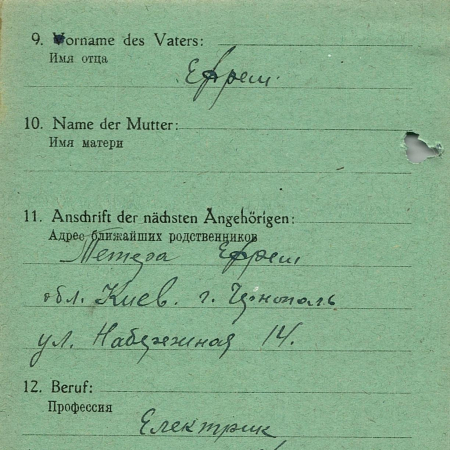 9. Vorname des Vaters:
Имя отца
Ефрем
10. Name der Mutter:
Имя матери
11. Anschrift der nächsten Angehörigen:
Адрес ближайших родственников
Ефрем
обл. Киев. г.
ул. Набережная 14.
12. Beruf:
Профессия
Електрик